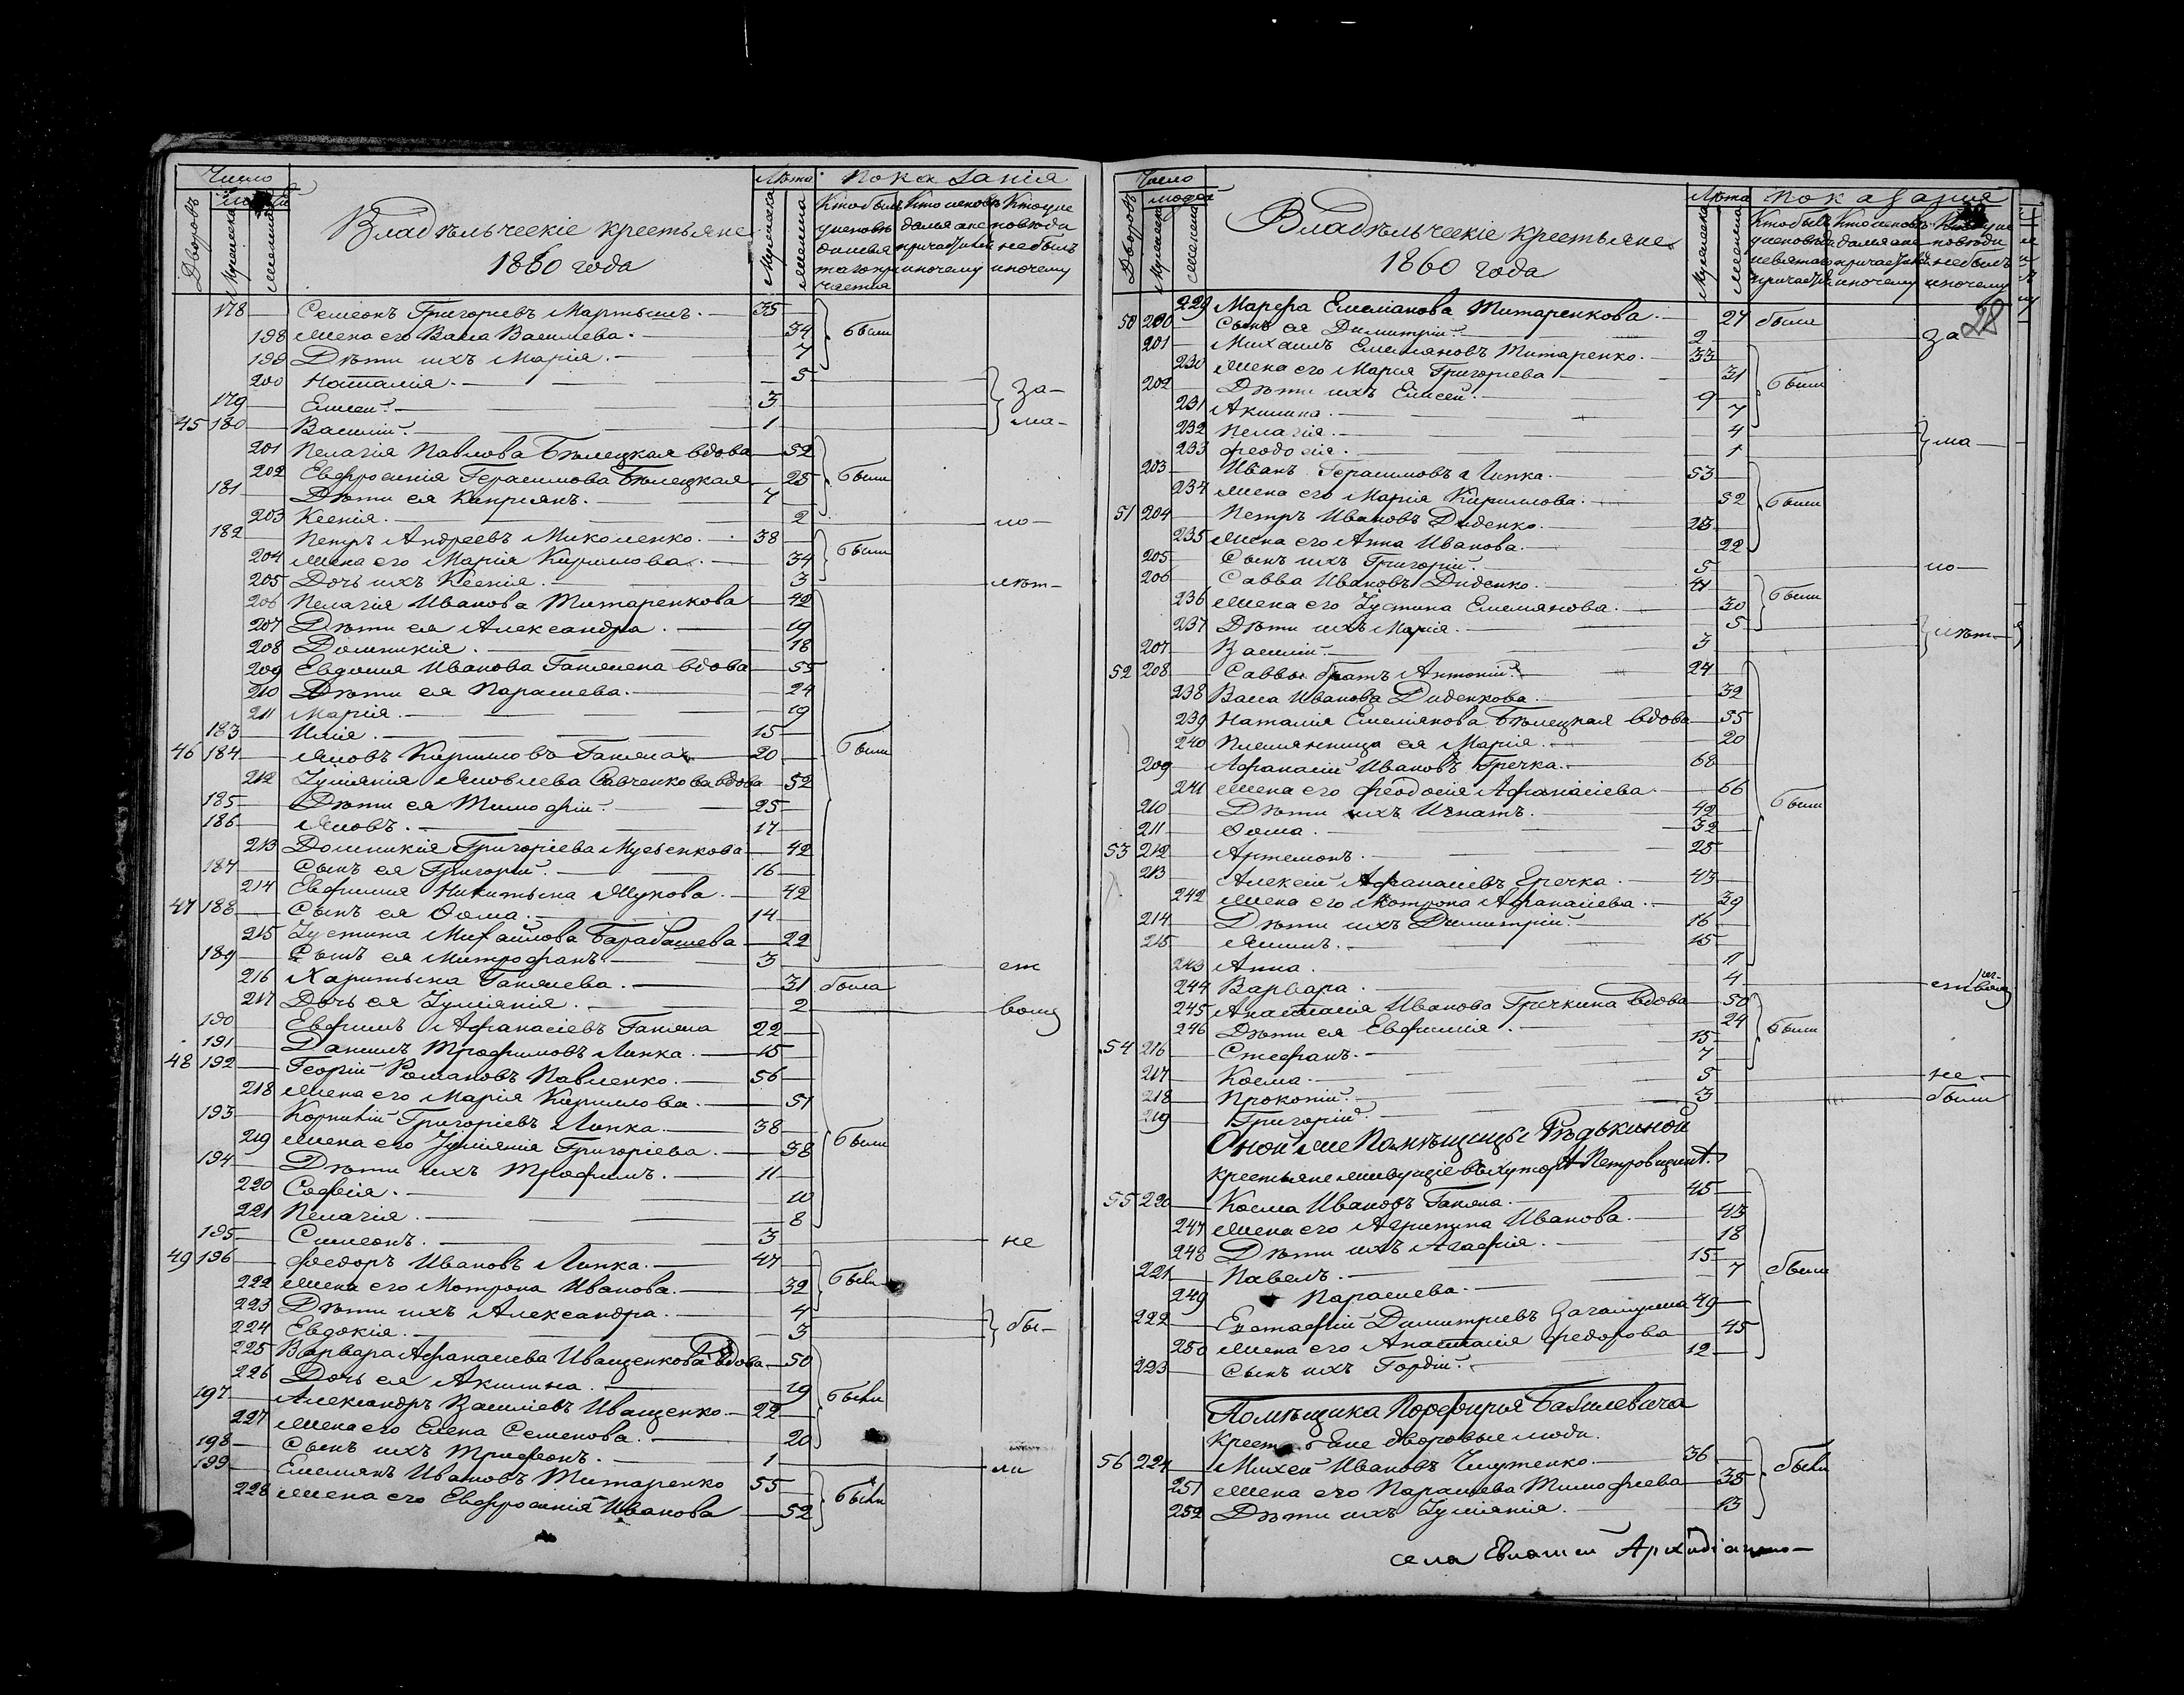 Число
Людей
Лѣта
Показанія
Дворовъ
Мужеска
Женска
Владѣльческіе крестьяне
1860 года
Мужеска
Женска
178 Семеонъ Григорьевъ Мартышъ. 35
198 Жена его Васса Васильева. 34 были
199 Дѣти ихъ Марія. 7
200 Наталія. 5 за-
179 Елисей. 3
45 180 Василій. 1 ма-
201 Пелагія Павлова Бѣлецкая вдова 52
202 Евфросинія Герасимова Бѣлецкая 25 были
181 Дѣти ея Кипріянъ. 7
203 Ксенія. 2 ло-
182 Петръ Андреевъ Миколенко. 38
204 Жена его Марія Кирилова. 34 были
205 Дочь ихъ Ксенія. 3 лѣт-
206 Пелагія Иванова Титаренкова 42
207 Дѣти ея Александра. 19
208 Домникія. 18
209 Евдокия Иванова Гапяжена вдова 55
210 Дѣти ея Парасцева. 24
211 Марія. 19
183 Илія. 15
46 184 Яковъ Кириловъ Гапяжа 20 были
212 Іуліянія Яковлева Савченкова вдова 52
185 Дѣти ея Тимофій. 25
186 Яковъ. 17
213 Домникія Григоріева Мусѣенкова 42
187 Сынъ ея Григорій. 16
214 Евфимия Никитина Жукова. 42
47 188 Сынъ ея Ѳома. 14
215 Іустина Михайлова Барабашева 22
189 Сынъ ея Митрофанъ. 3 ст
216 Харитина Гапяжева. 31 была
217 Дочь ея Іуліянія. 2 вомъ
190 Евфимъ Афанасіевъ Гапяжа 22
191 Даніилъ Трофимовъ Липка. 15
48 192 Георгій Романовъ Павленко. 56
218 Жена его Марія Кирилова. 51
193 Корнилій Григоріевъ Липка. 38
219 Жена его Іуліянія Григоріева. 38 были
194 Дѣти ихъ Трофимъ. 11
220 Софія. 10
221 Пелагія. 8
195 Симеонъ. 3 не
49 196 Федоръ Ивановъ Липка. 47
222 Жена его Мотрона Иванова. 32 были
223 Дѣти ихъ Александра. 4
224 Евдокія. 3 бы-
225 Варвара Афанасиева Иващенкова вдова 50
226 Дочь ея Акилина. 19
197 Александръ Василіевъ Иващенко. 22 были
227 Жена его Елена Семенова. 20
198 Сынъ ихъ Трифонъ. 1 ли
199 Емеліянъ Ивановъ Титаренко 55
228 Жена его Евфросинія Иванова 52 были
Число
Людей
Лѣта
Показанія
Дворовъ
Мужеска
Женска
Владѣльческіе крестьяне
1860 года
28
229 Марфа Емеліанова Титаренкова. 27 были
50 200 Сынъ ея Димитрій. 2 за
201 Михаилъ Емеліяновъ Титаренко. 33
230 Жена его Мария Григоріева 31 были
202 Дѣти ихъ Елисей. 9
231 Акилина. 7
232 Пелагія. 4
233 Феодосія. 1 ма
203 Иванъ Герасимовъ Липка. 53
234 Жена его Марія Кирилова. 52 были
51 204 Петръ Ивановъ Диденко. 23
235 Жена его Анна Иванова. 22
205 Сынъ ихъ Григорій. 5 ло
206 Савва Ивановъ Диденко. 41
236 Жена его Іустина Емеліянова. 30 были
237 Дѣти ихъ Марія. 5
207 Василій. 3 лѣт-
52 208 Саввы братъ Антоній. 24
238 Васса Иванова Диденкова. 32
239 Наталия Емеліянова Бѣлецкая вдова 55
240 Племянница ея Марія. 20
209 Афанасій Ивановъ Гречка. 68
241 Жена его Феодосія Афанасіева. 66 были
210 Дѣти ихъ Игнатъ. 42
211 Ѳома. 32
53 212 Артемонъ. 25
213 Алексій Афанасіевъ Гречка. 43
242 Жена его Мотрона Афанасіева. 39
214 Дѣти ихъ Димитрій. 16
215 Якимъ. 15
243 Анна. 11
244 Варвара. 4
245 Анастасія Иванова Гречкина вдова 50
246 Дѣти ея Евфимія. 24 были
54 216 Стефанъ. 15
217 Косма. 7
218 Прокопій. 5 не
219 Григорій. 3 были
Оной же Помѣщицы Рѣдькиной
крестьяне живущіе въ хуторѣ Петровщинѣ.
55 220 Косма Ивановъ Гапяжа. 45
247 Жена его Агрипина Иванова. 43
248 Дѣти ихъ Агафія. 18
221 Павелъ. 15 были
249 Парасцева. 7
222 Евстафій Димитріевъ 49
250 Жена его Анастасія Федорова 45
223 Сынъ ихъ Гордій. 12
Помѣщика Порфирія Базилевича
Крестьяне дворовые люди.
56 224 Михей Ивановъ 36 были
251 Жена его Парасцева Тимофіева 35
252 Дѣти ихъ Іуліянія. 13
села